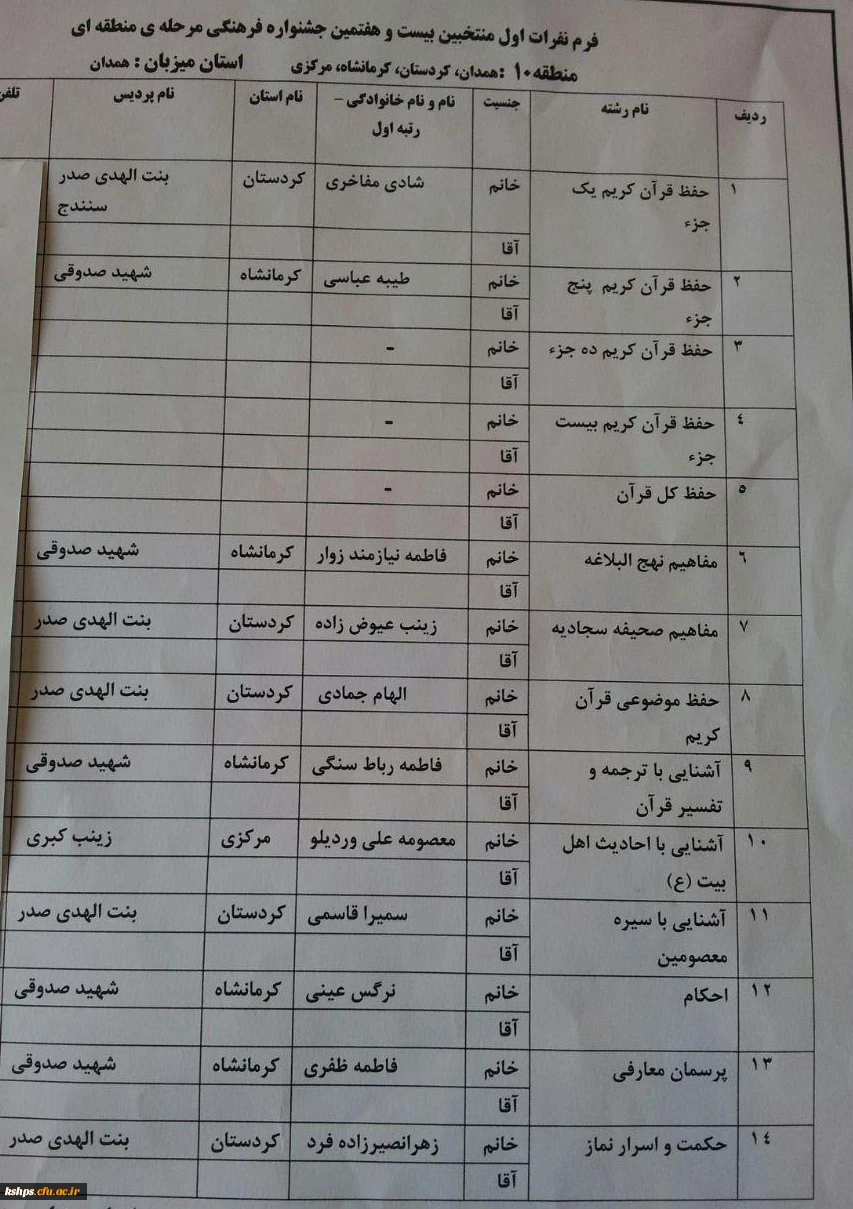 فرم نفرات اول منتخبین بیست و هفتمین جشنواره فرهنگی مرحله ی منطقه ای
منطقه ۱۰ : همدان، کردستان، کرمانشاه، مرکزی استان میزبان : همدان
ردیف نام رشته جنسیت نام و نام خانوادگی – نام استان نام پردیس تلفن
رتبه اول
۱ حفظ قرآن کریم یک خانم شادی مفاخری کردستان بنت الهدی صدر
جزء سنندج
آقا
۲ حفظ قرآن کریم پنج خانم طیبه عباسی کرمانشاه شهید صدوقی
جزء آقا
۳ حفظ قرآن کریم ده جزء خانم -
آقا
٤ حفظ قرآن کریم بیست خانم -
جزء آقا
٥ حفظ کل قرآن خانم -
آقا
٦ مفاهیم نهج البلاغه خانم فاطمه نیازمند زوار کرمانشاه شهید صدوقی
آقا
۷ مفاهیم صحیفه سجادیه خانم زینب عیوض زاده کردستان بنت الهدی صدر
آقا
۸ حفظ موضوعی قرآن خانم الهام جمادی کردستان بنت الهدی صدر
کریم آقا
۹ آشنایی با ترجمه و خانم فاطمه رباط سنگی کرمانشاه شهید صدوقی
تفسیر قرآن آقا
۱۰ آشنایی با احادیث اهل خانم معصومه علی وردیلو مرکزی زینب کبری
بیت (ع) آقا
۱۱ آشنایی با سیره خانم سمیرا قاسمی کردستان بنت الهدی صدر
معصومین آقا
۱۲ احکام خانم نرگس عینی کرمانشاه شهید صدوقی
آقا
۱۳ پرسمان معارفی خانم فاطمه ظفری کرمانشاه شهید صدوقی
آقا
۱٤ حکمت و اسرار نماز خانم زهرانصیرزاده فرد کردستان بنت الهدی صدر
آقا
kshps.cfu.ac.ir